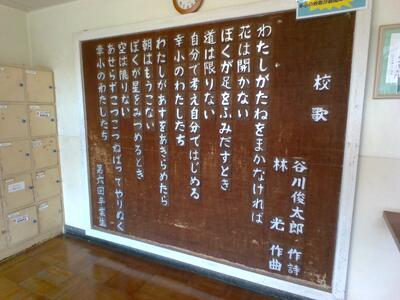 校歌
谷川俊太郎 作詩
林 光 作曲
わたしがたねをまかなければ
花は開かない
ぼくが足をふみだすとき
道は限りない
自分で考え自分ではじめる
幸小のわたしたち
わたしがあすをあきらめたら
朝はもうこない
ぼくが星をみつめるとき
空は限りない
あせらずこつこつねばってやりぬく
幸小のわたしたち
第六回卒業生